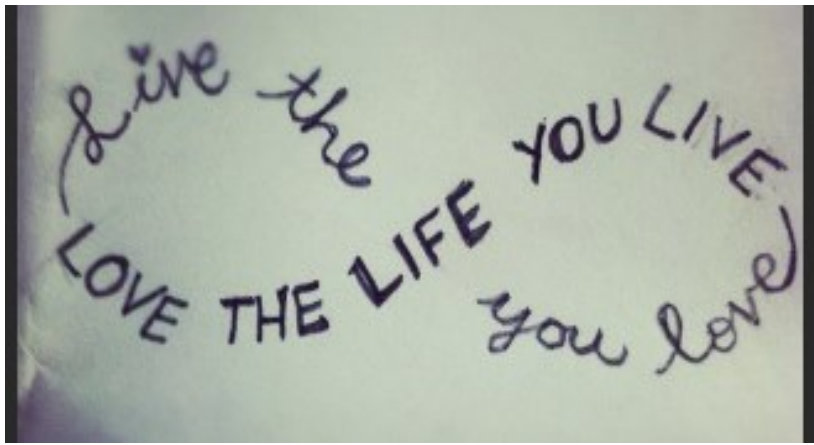 Live the
LIFE
you love
LOVE THE
YOU LIVE